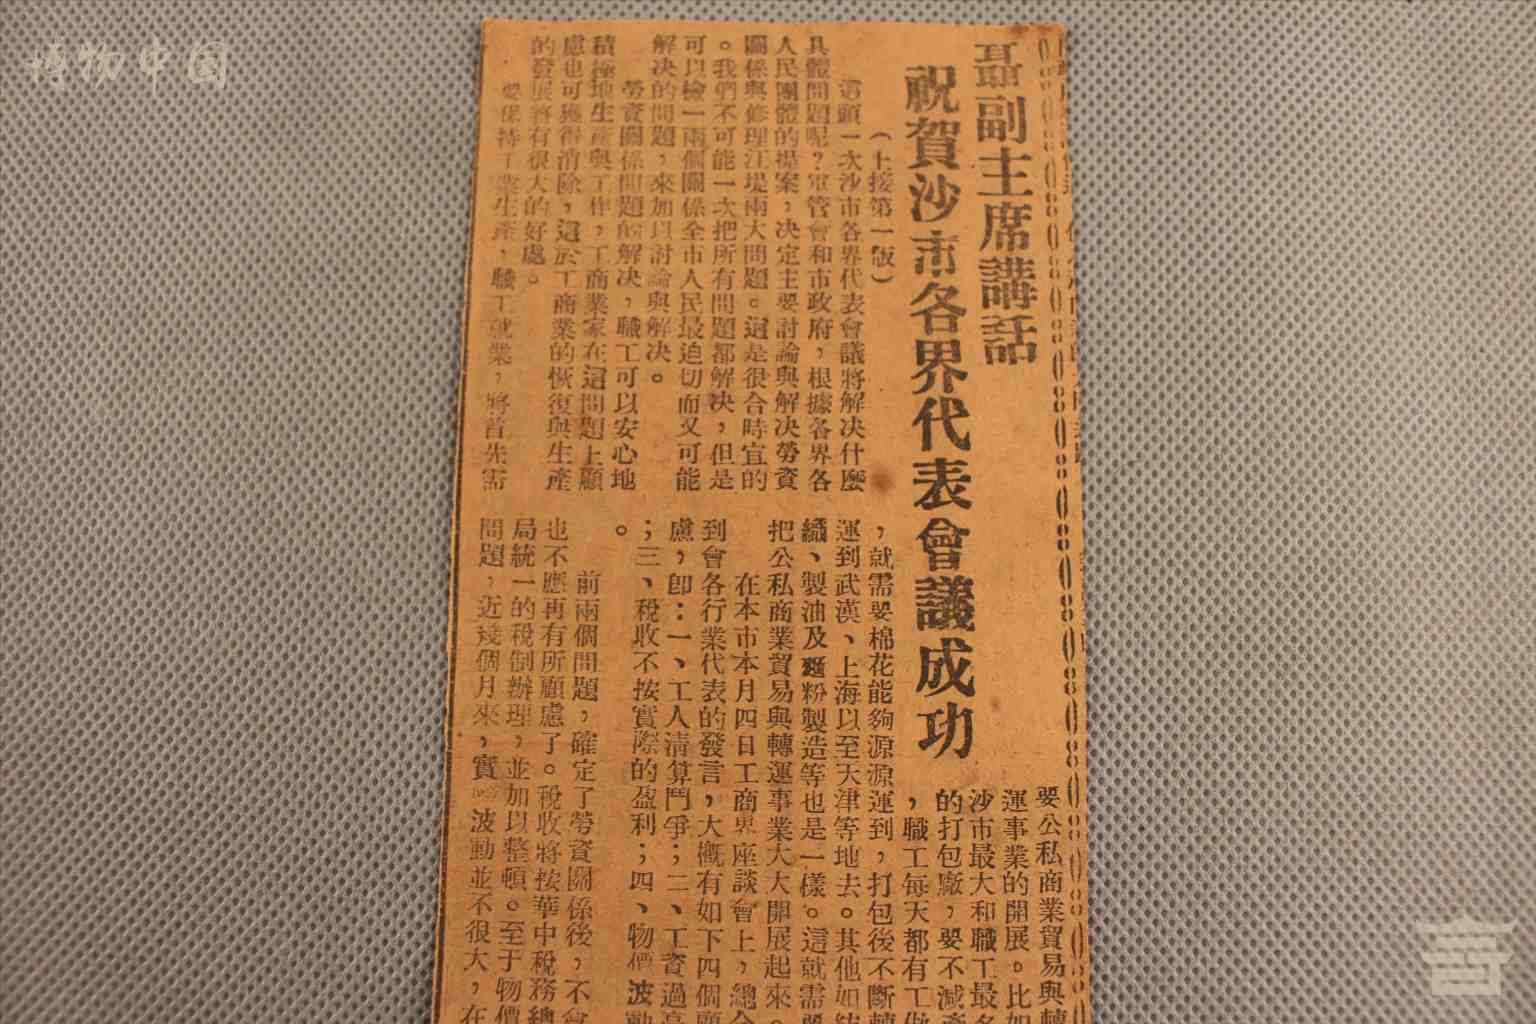 聶副主席講話
祝賀沙市各界代表會議成功
（上接第一版）
這頭一次沙市各界代表會議將解决什麼
具體問題呢？軍管會和市政府，根據各界各
人民團體的提案，决定主要討論與解决勞資
關係與修理江堤兩大問題。這是很合時宜的
。我們不可能一次把所有問題都解决，但是
可以檢一兩個關係全市人民最迫切而又可能
解决的問題，來加以討論與解决。
勞資關係問題的解决，職工可以安心地
積極地生產與工作，工商業家在這問題上顧
慮也可獲得消除，這於工商業的恢復與生產
的發展將有很大的好處。
要保持工業生產，職工就業，將首先需
要公私商業貿易與轉
運事業的開展。比如
沙市最大和職工最多
的打包廠，要不減產
，職工每天都有工做
，就需要棉花能夠源源運到，打包後不斷轉
運到武漢、上海以至天津等地去。其他如紡
織、製油及麵粉製造等也是一樣。這就需要
把公私商業貿易與轉運事業大大開展起來。
在本市本月四日工商界座談會上，總合
到會各行業代表的發言，大概有如下四個顧
慮，卽：一、工人清算鬥爭；二、工資過高
；三、稅收不按實際的盈利；四、物價波動
。
前兩個問題，確定了勞資關係後，不會
也不應再有所顧慮了。稅收將按華中稅務總
局統一的稅制辦理，並加以整頓。至于物價
問題，近幾個月來，實際波動並不很大，在
博物中国